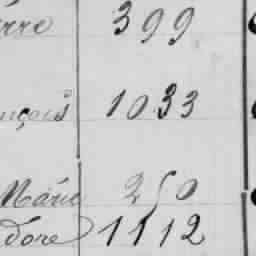 rre 399
nçois 1033
Marie 250
dore 1112